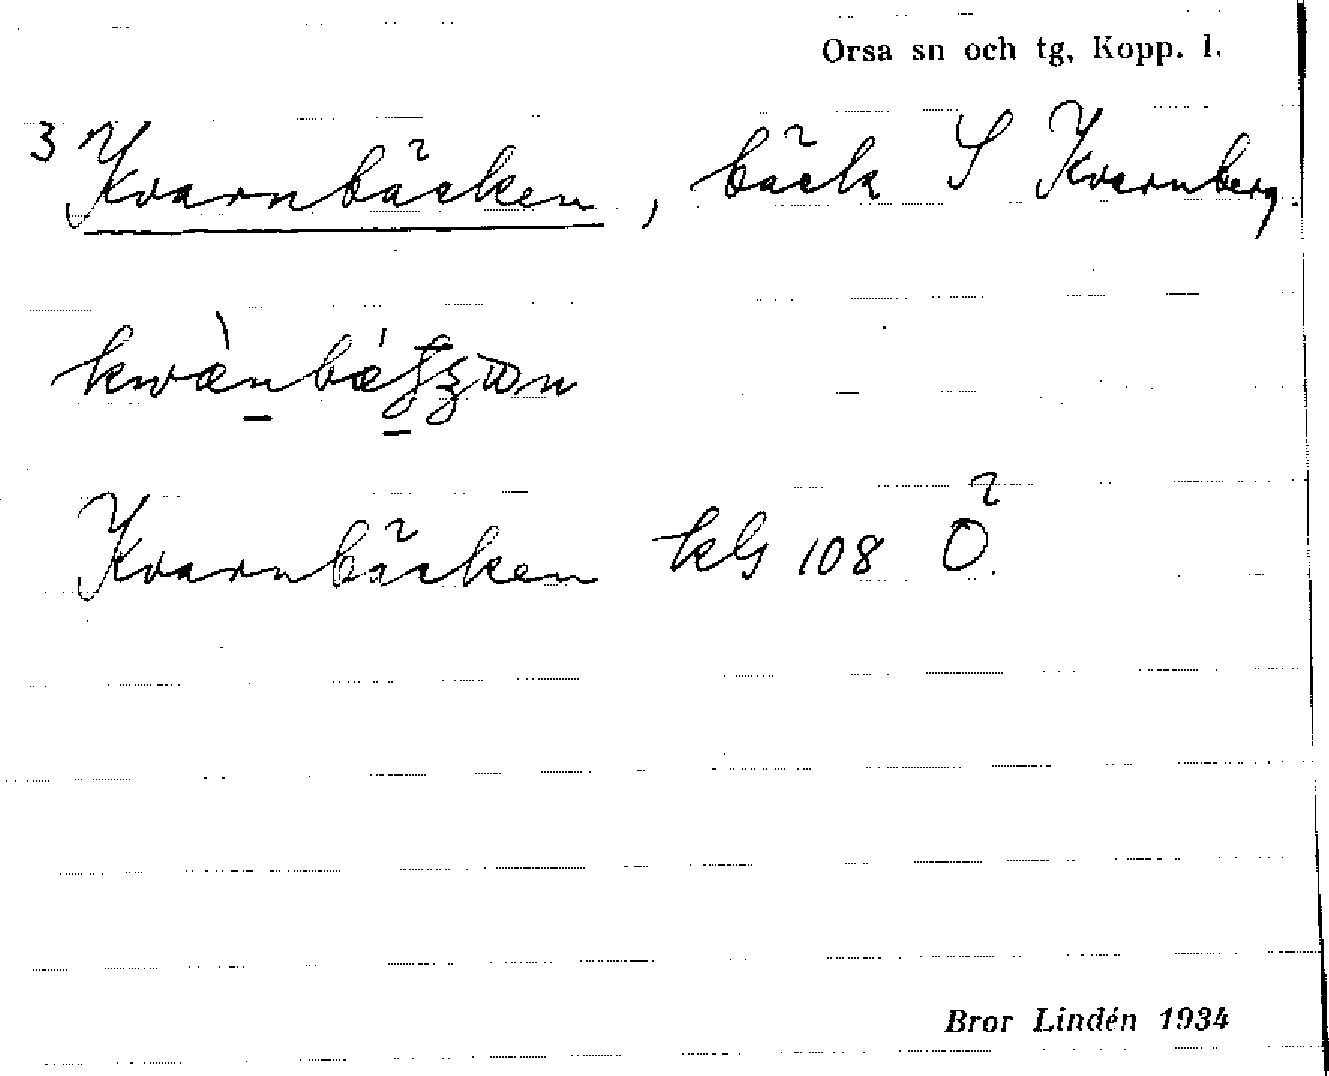 Orsa sn och tg, Kopp. l.
3 Kvarnbäcken, bäck S Kvarnberg.
Kvarnbäcken kbl 108 Ö.
Bror Lindén 1934